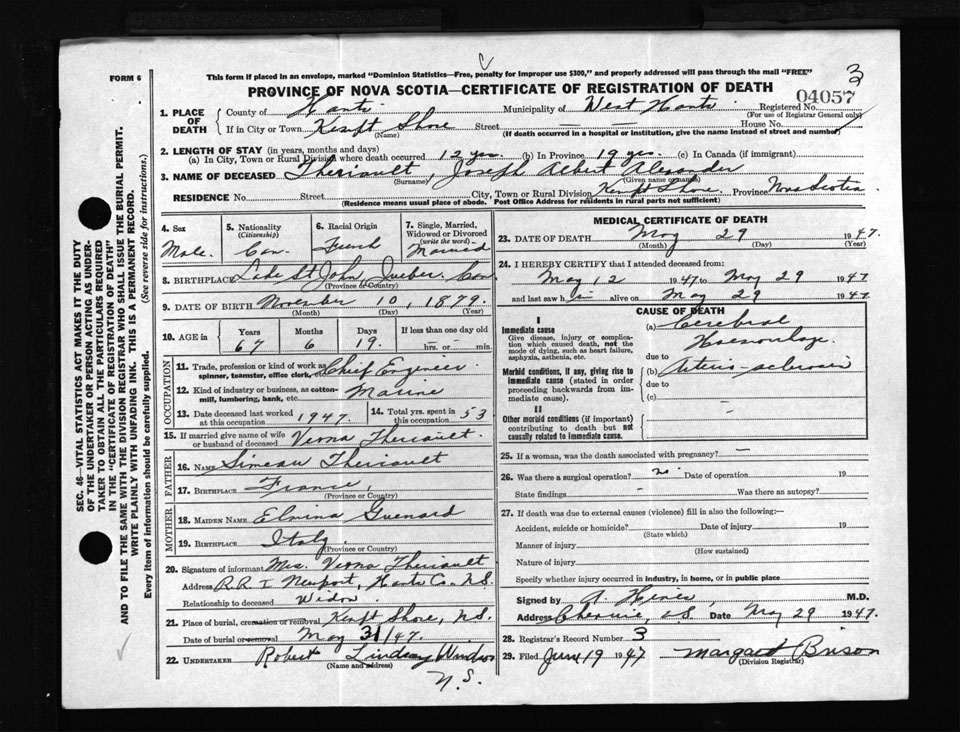 3
FORM 6
This form if placed in an envelope, marked "Dominion Statistics—Free, penalty for improper use $300," and properly addressed will pass through the mail "FREE"
PROVINCE OF NOVA SCOTIA—CERTIFICATE OF REGISTRATION OF DEATH
04057
1. PLACE OF DEATH
County of Hants Municipality of West Hants Registered No.
(For use of Registrar General only)
If in City or Town Kempt Shore Street House No.
(Name) (If death occurred in a hospital or institution, give the name instead of street and number)
2. LENGTH OF STAY (in years, months and days)
(a) In City, Town or Rural Division where death occurred 12 yrs. (b) In Province 19 yrs. (c) In Canada (if immigrant)
3. NAME OF DECEASED Theriault, Joseph Albert
(Surname) (Given name or names)
RESIDENCE No. Street City, Town or Rural Division Kempt Shore Province Nova Scotia
(Residence means usual place of abode. Post Office Address for residents in rural parts not sufficient)
4. Sex Male.
5. Nationality (Citizenship) Can.
6. Racial Origin French
7. Single, Married, Widowed or Divorced (write the word) Married
8. BIRTHPLACE Lake St John, Quebec. Can
(Province or Country)
9. DATE OF BIRTH November 10, 1879.
(Month) (Day) (Year)
10. AGE in Years 67 Months 6 Days 19. If less than one day old hrs. or min.
OCCUPATION
11. Trade, profession or kind of work as spinner, teamster, office clerk, etc. Chief Engineer
12. Kind of industry or business, as cotton-mill, lumbering, bank, etc. Marine
13. Date deceased last worked at this occupation 1947. 14. Total yrs. spent in this occupation 53
15. If married give name of wife or husband of deceased Verna Theriault.
FATHER
16. NAME Simeau Theriault
17. BIRTHPLACE France,
(Province or Country)
MOTHER
18. MAIDEN NAME Elmina Guenard
19. BIRTHPLACE Italy
(Province or Country)
20. Signature of informant Mrs. Verna Theriault
Address R.R. 1 Newport, Hants Co. N.S.
Relationship to deceased Widow.
21. Place of burial, cremation or removal Kempt Shore, N.S.
Date of burial or removal May 31/47.
22. UNDERTAKER Robert Lindsay Windsor
(Name and address)
N.S.
MEDICAL CERTIFICATE OF DEATH
23. DATE OF DEATH May 29 1947.
(Month) (Day) (Year)
24. I HEREBY CERTIFY that I attended deceased from:
May 12 1947 to May 29 1947
and last saw him alive on May 29 1947.
CAUSE OF DEATH
I
Immediate cause
Give disease, injury or complication which caused death, not the mode of dying, such as heart failure, asphyxia, asthenia, etc.
(a) Cerebral Haemorrhage
due to
Morbid conditions, if any, giving rise to immediate cause (stated in order proceeding backwards from immediate cause).
(b) Arterio-sclerosis
due to
(c)
II
Other morbid conditions (if important) contributing to death but not causally related to immediate cause.
25. If a woman, was the death associated with pregnancy? —
26. Was there a surgical operation? no Date of operation 19
State findings — Was there an autopsy?
27. If death was due to external causes (violence) fill in also the following:—
Accident, suicide or homicide? Date of injury 19
(State which)
Manner of injury
(How sustained)
Nature of injury
Specify whether injury occurred in industry, in home, or in public place
Signed by M.D.
Address N.S. Date May 29 1947.
28. Registrar's Record Number 3
29. Filed June 19 1947 Margaret Brison
(Division Registrar)
SEC. 46—VITAL STATISTICS ACT MAKES IT THE DUTY
OF THE UNDERTAKER OR PERSON ACTING AS UNDER-
TAKER TO OBTAIN ALL THE PARTICULARS REQUIRED
IN THE "CERTIFICATE OF REGISTRATION OF DEATH"
AND TO FILE THE SAME WITH THE DIVISION REGISTRAR WHO SHALL ISSUE THE BURIAL PERMIT.
WRITE PLAINLY WITH UNFADING INK. THIS IS A PERMANENT RECORD.
Every item of information should be carefully supplied. (See reverse side for instructions.)